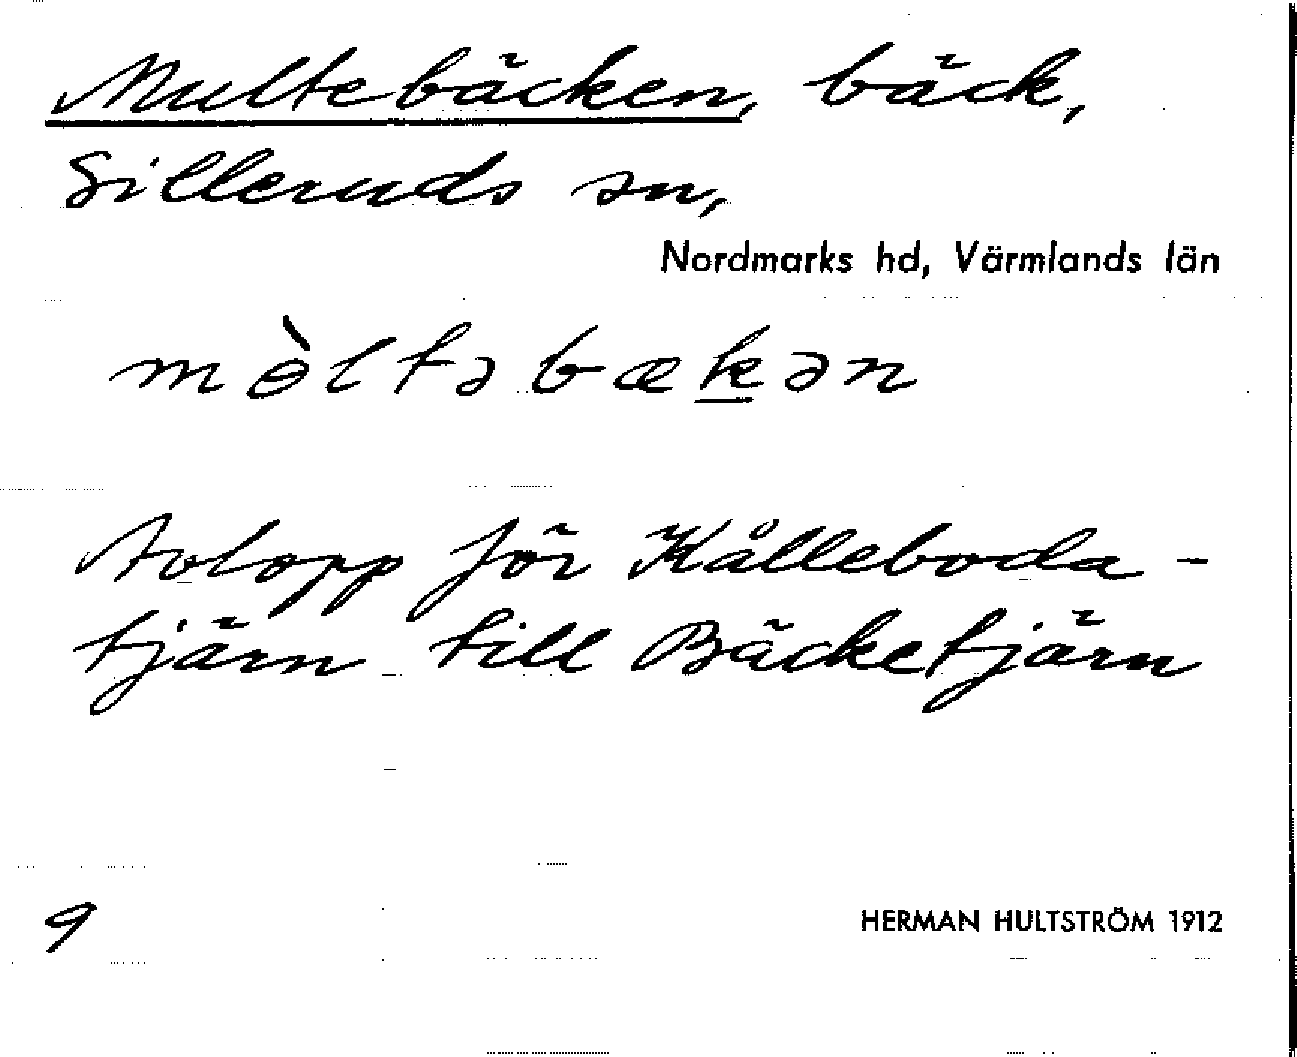 Multebäcken, bäck,
Silleruds sn,
Nordmarks hd, Värmlands län
mɵ̀ltəbæk̲ən
Avlopp för Kålleboda-
tjärn till Bäcketjärn
9
HERMAN HULTSTRÖM 1912